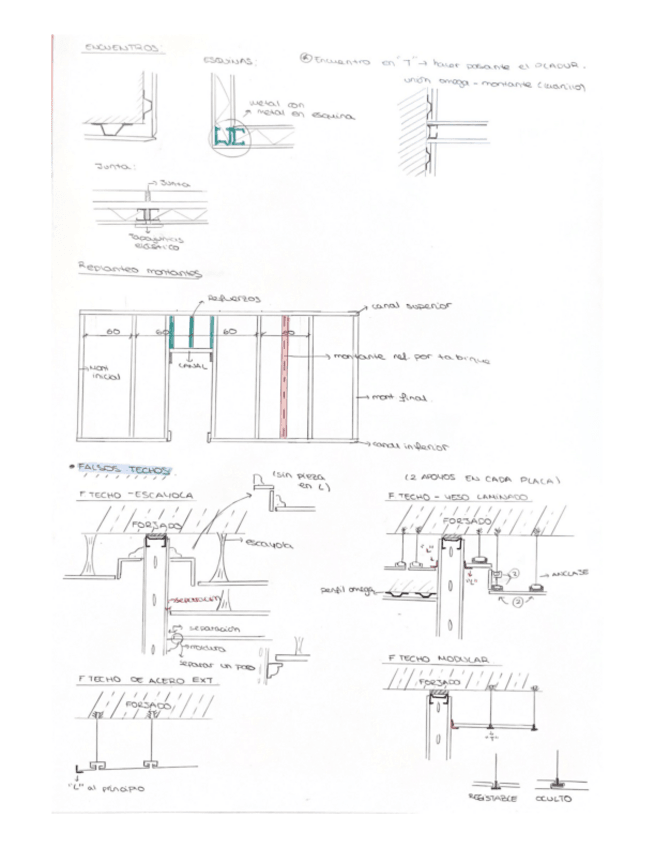 ENCUENTROS:
ESQUINAS:
* Encuentro en "T" → hacer pasante el PLADUR.
unión omega - montante (cuanillo)
metal con
metal en esquina
Junta:
Junta
Tapajuntas
elástico
Replanteo montantes
Refuerzos
canal superior
60
60
60
60
montante ref. por tabique
CANAL
Mont
inicial
mont final.
canal inferior
• FALSOS TECHOS.
(sin pieza
en L)
(2 APOYOS EN CADA PLACA)
F TECHO - ESCAYOLA
F TECHO - YESO LAMINADO
FORJADO
FORJADO
escayola
"L"
"L"
2
ANCLAJE
perfil omega
2
separación
separación
moldura
separar un poco
F TECHO MODULAR
F TECHO DE ACERO EXT
FORJADO
FORJADO
"L" al principio
REGISTRABLE
OCULTO